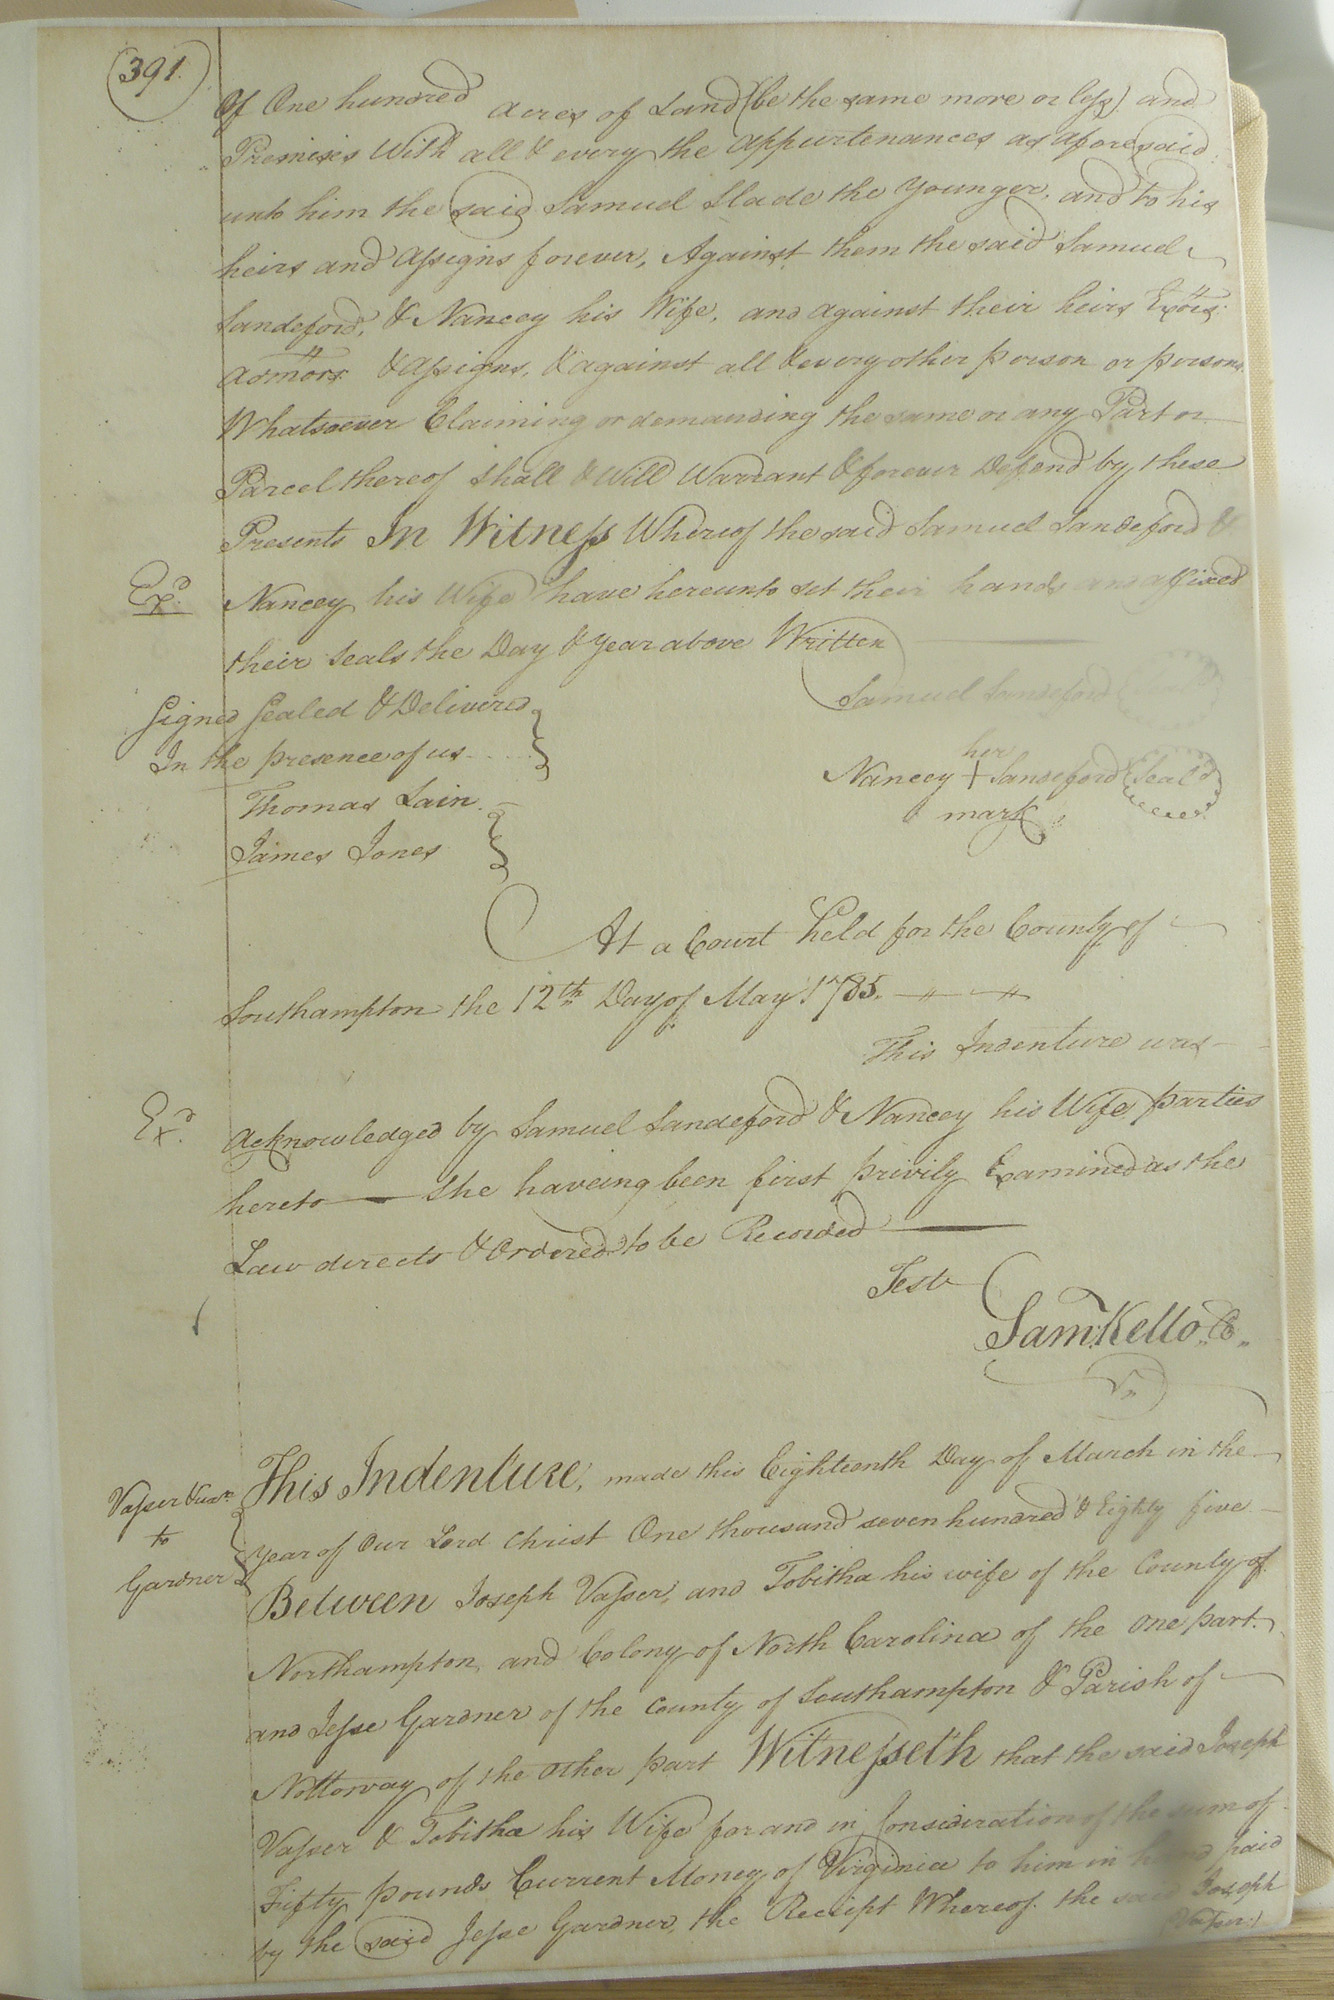 391.
Of One hundred acres of Land (be the same more or less) and
Premises With all & every the appurtenances as aforesaid
unto him the said Samuel Slade the Younger, and to his
heirs and assigns forever, Against them the said Samuel
Sandeford, & Nancey his Wife, and against their heirs Exors.
admors. & assigns, & against all & every other person or persons
Whatsoever Claiming or demanding the same or any Part or
Parcel thereof shall & Will Warrant & forever Defend by these
Presents In Witness Whereof the said Samuel Sandeford &
Exd. Nancey his Wife have hereunto set their hands and affixed
their seals the Day & Year above Written
Samuel Sandeford
Signed Sealed & Delivered
In the presence of us
her
Nancey + Sandeford Seal'd
mark
Thomas Lain
James Jones
At a Court held for the County of
Southampton the 12th Day of May 1785.
This Indenture was
Exd. acknowledged by Samuel Sandeford & Nancey his Wife parties
hereto she haveing been first privily Examined as the
Law directs & Ordered to be Recorded
Test
Sam. Kello, C,,
Vasser & uxr.
to
Gardner
This Indenture, made this Eighteenth Day of March in the
Year of Our Lord Christ One thousand seven hundred & Eighty five
Between Joseph Vasser, and Tobitha his wife of the County of
Northampton, and Colony of North Carolina of the one part.
and Jesse Gardner of the County of Southampton & Parish of
Nottoway of the other part Witnesseth that the said Joseph
Vasser & Tobitha his Wife for and in Consideration of the sum of
Fifty pounds Current Money of Virginia to him in hand paid
by the said Jesse Gardner, the Receipt Whereof the said Joseph
(Vasser.)